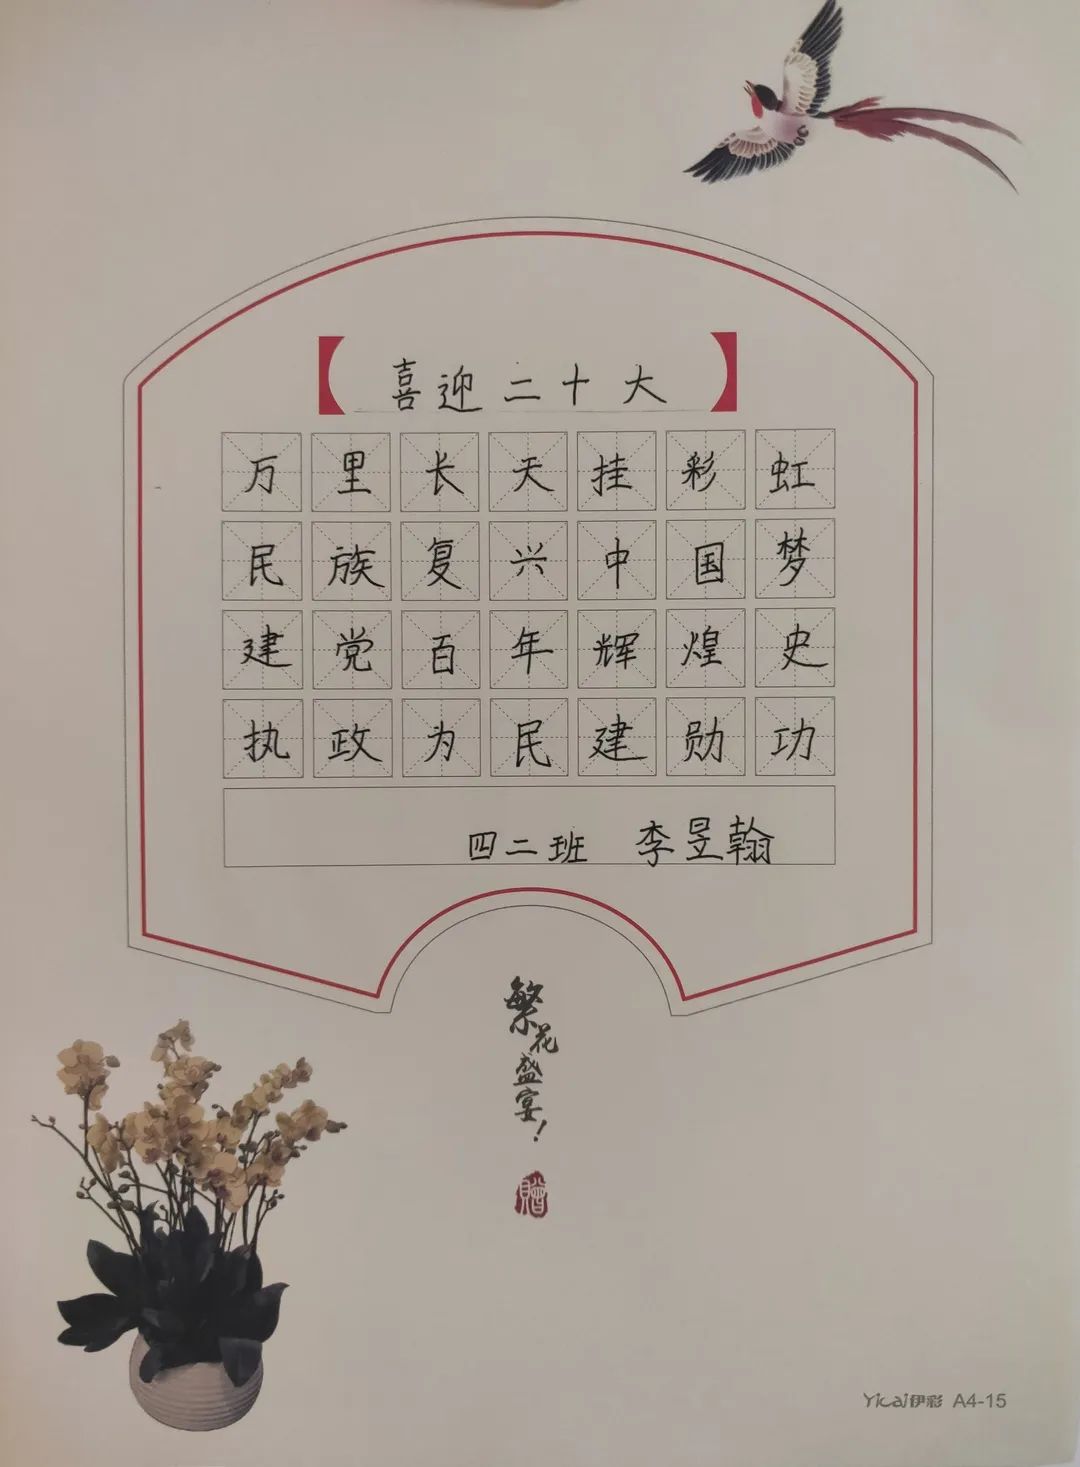 喜迎二十大
万里长天挂彩虹
民族复兴中国梦
建党百年辉煌史
执政为民建勋功
四二班 李昱翰
繁花盛宴!
贈
Yicai伊彩 A4-15